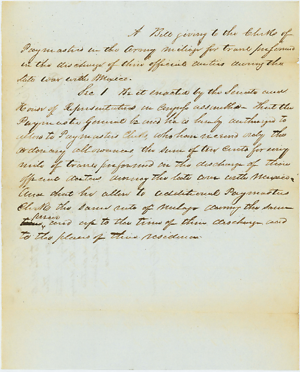 A Bill giving to the Clerks of
Paymasters in the Army mileage for travel performed
in the discharge of their official duties during the
late war with Mexico.
Sec. 1 Be it enacted by the Senate and
House of Representatives in Congress assembled That the
Paymaster General be and he is hereby authorized to
allow to Paymasters Clerks, who have received only the
ordinary allowances the sum of ten cents for every
mile of travel performed in the discharge of their
official duties during the late war with Mexico:
And that he allow to additional Paymasters
Clerks the same rate of mileage during the same
period and up to the time of their discharge and
to the places of their residence